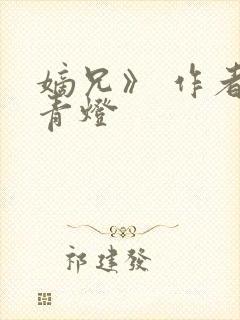 嫡兄》 作者
青燈
祁建發